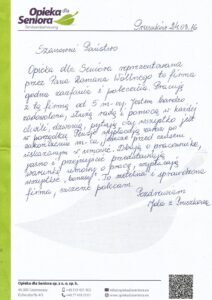 Opieka dla
Seniora
Szanowni Państwo
Opieka dla Seniora reprezentowana
przez Pana Romana Wollnego to firma
godna zaufania i polecenia. Pracuję
z tą firmą od 5 m-cy. Jestem bardzo
zadowolona, służą radą i pomocą w każdej
chwili, dzwonią, pytają czy wszystko jest
w porządku. Pensje wypłacają zaraz po
zakończeniu m-ca, jeszcze przed czasem
wskazanym w umowie. Dbają o pracownika,
jasno i przejrzyście przedstawiają
warunki umowy o pracę, wypłacają
wszystkie bonusy. To rzetelna i sprawdzona
firma, szczerze polecam.
Pozdrawiam
Opieka dla Seniora sp. z o. o. sp. k.